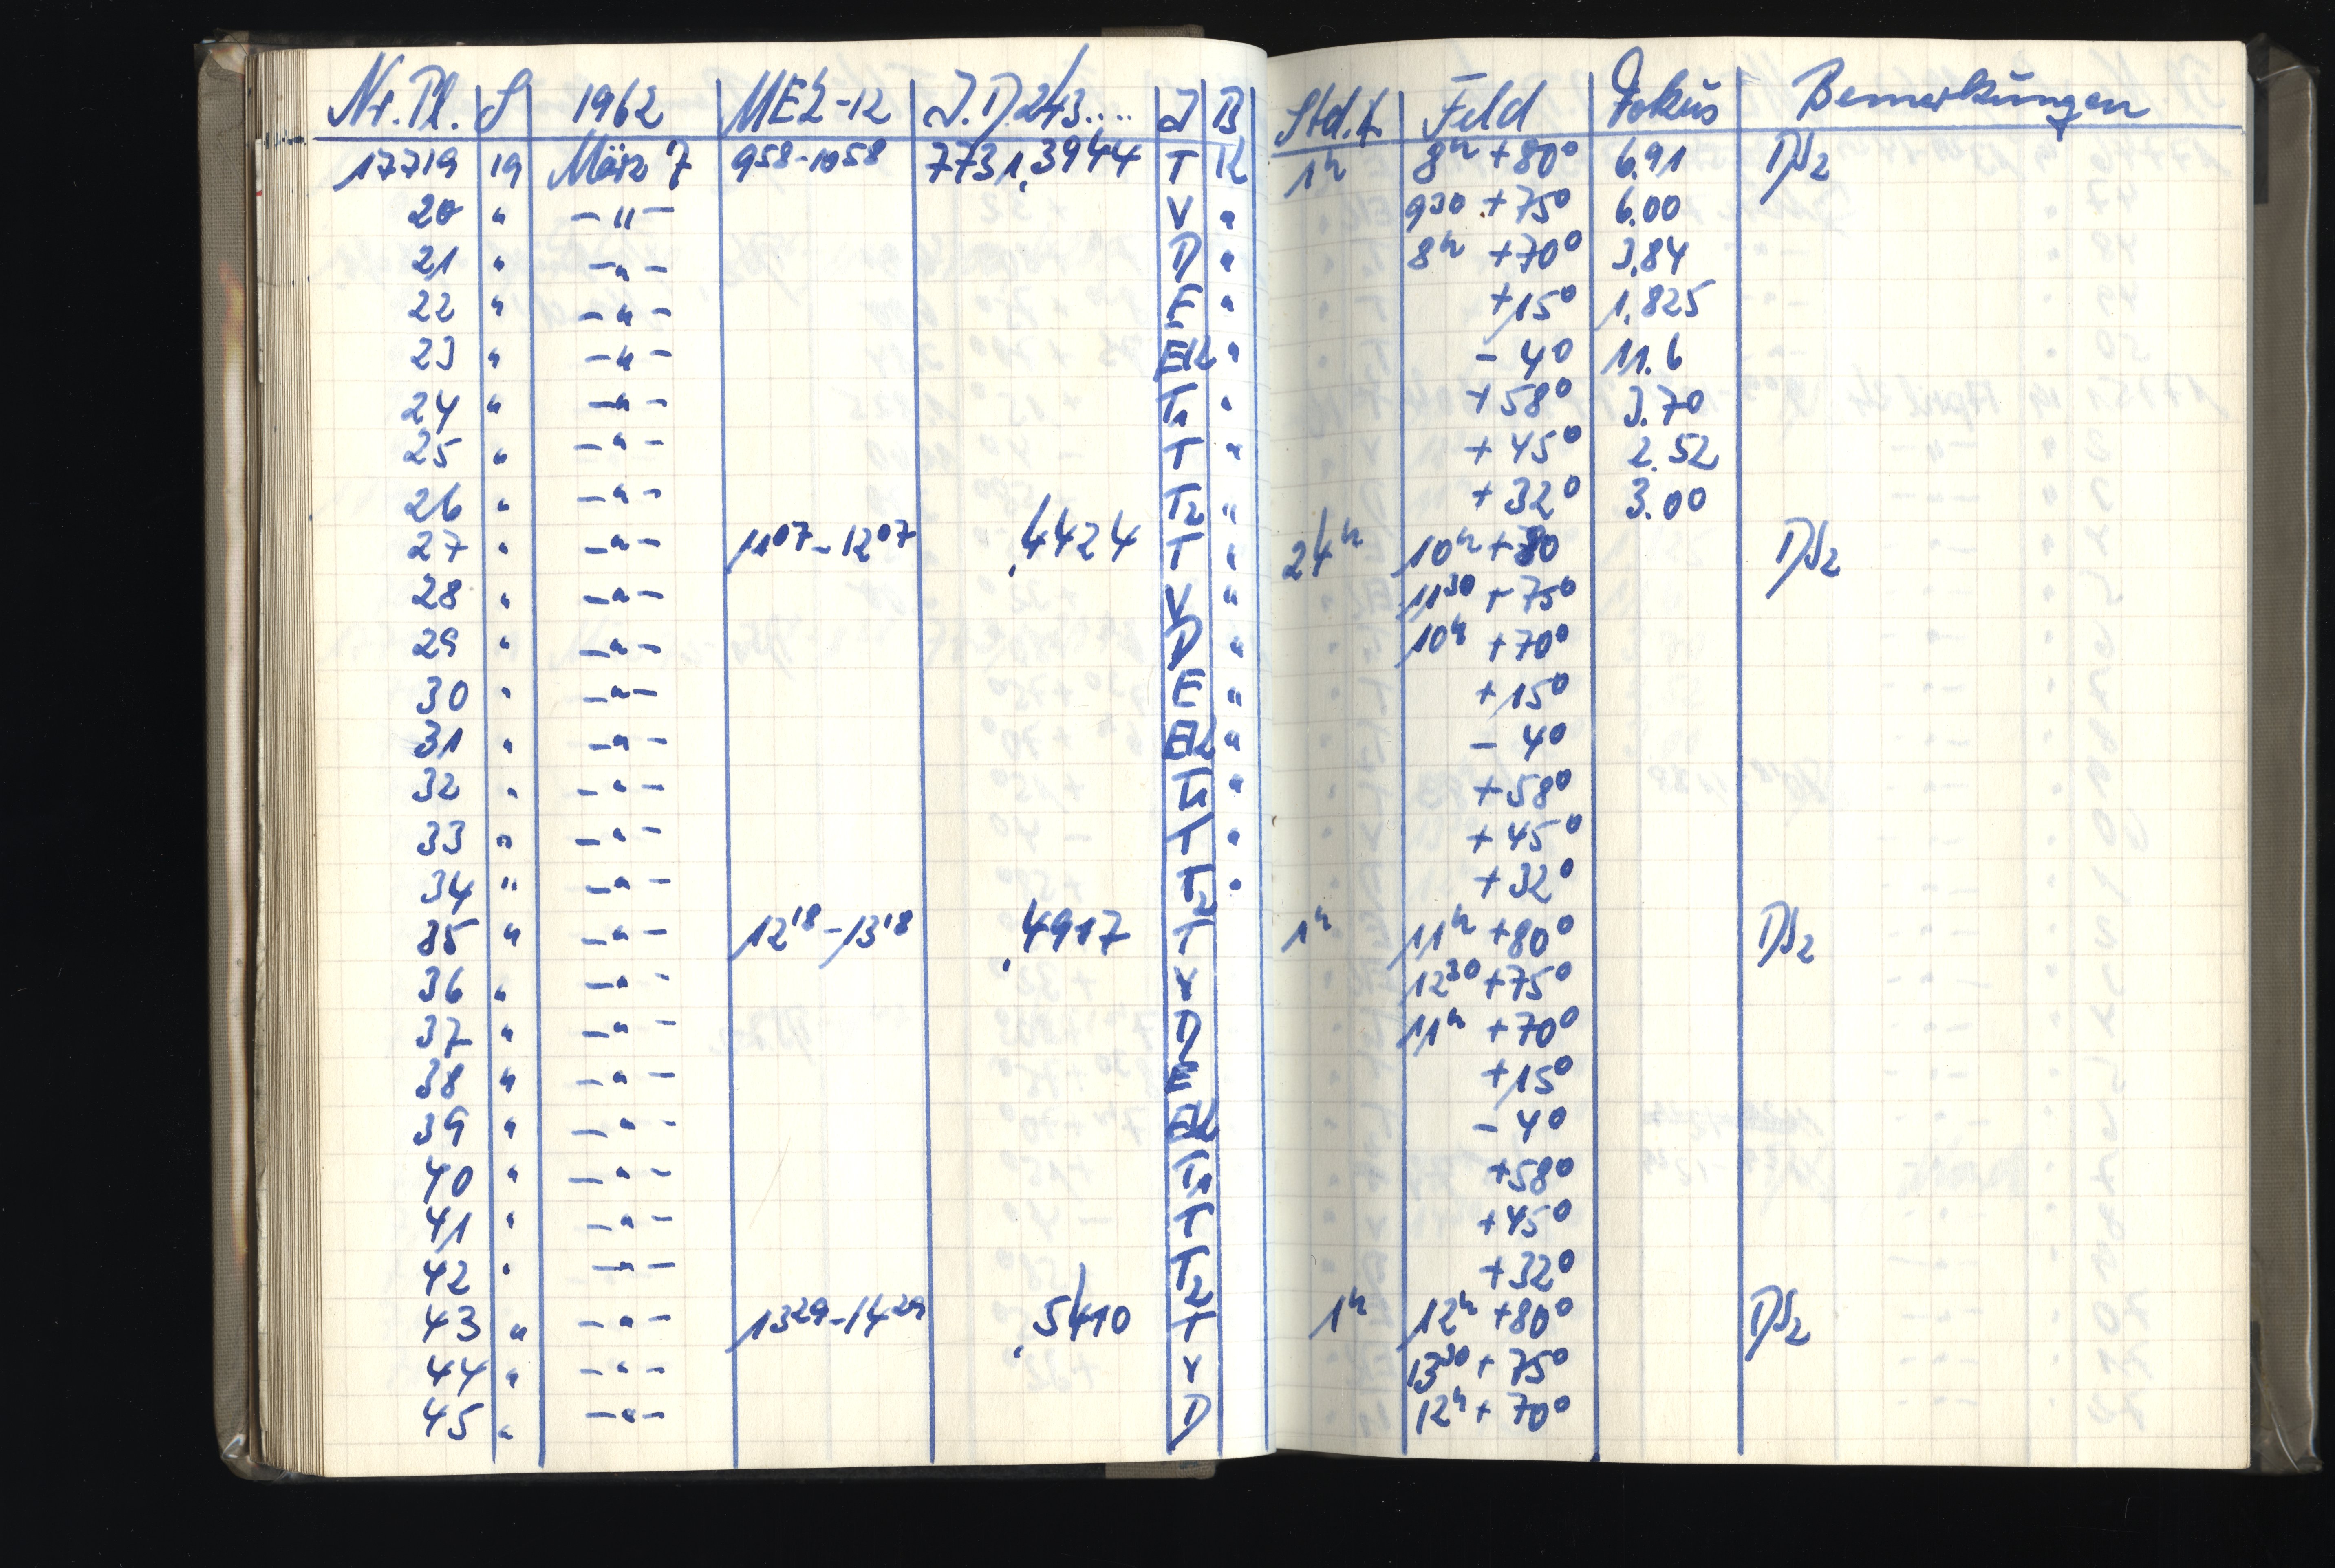 Nr. Pl. S 1962 MEZ-12 J.D. 243.... J B Std. t. Feld Fokus Bemerkungen
17719 19 März 7 9⁵⁸-10⁵⁸ 7731,3944 T K 1ʰ 8ʰ +80° 6.91 DS₂
20 " -"- V " 9³⁰ +75° 6.00
21 " -"- D " 8ʰ +70° 3.84
22 " -"- E " +15° 1.825
23 " -"- EK " - 4° 11.6
24 " -"- T₁ " +58° 3.70
25 " -"- T " +45° 2.52
26 " -"- T₂ " +32° 3.00
27 " -"- 11⁰⁷-12⁰⁷ ,4424 T " 24ʰ 10ʰ +80 DS₂
28 " -"- V " 11³⁰ +75°
29 " -"- D " 10ʰ +70°
30 " -"- E " +15°
31 " -"- EK " - 4°
32 " -"- T₁ " +58°
33 " -"- T " +45°
34 " -"- T₂ " +32°
35 " -"- 12¹⁸-13¹⁸ ,4917 T 1ʰ 11ʰ +80° DS₂
36 " -"- V 12³⁰ +75°
37 " -"- D 11ʰ +70°
38 " -"- E +15°
39 " -"- EK - 4°
40 " -"- T₁ +58°
41 " -"- T +45°
42 " -"- T₂ +32°
43 " -"- 13²⁹-14²⁹ ,5410 T 1ʰ 12ʰ +80° DS₂
44 " -"- V 13³⁰ +75°
45 " -"- D 12ʰ +70°